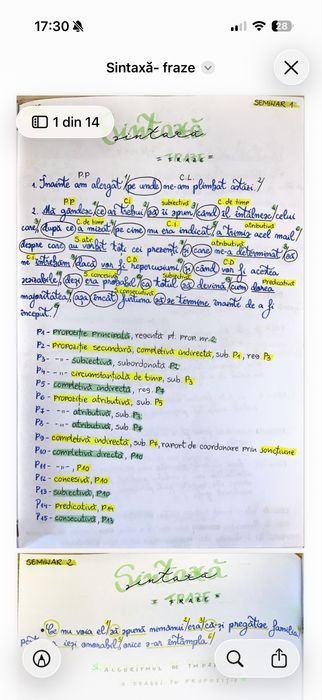 17:30
28
Sintaxă- fraze
1 din 14
SEMINAR 1
Sintaxă
sintaxa
= FRAZE =
P.P C.L.
1. Înainte am alergat pe unde ne-am plimbat astăzi.
P.P C.i subiectivă C. de timp
2. Mă gândesc ce ar trebui să îi spun când îl întâlnesc celui
C. de timp C.i atributivă
care, după ce a mizat pe cine nu era indicat a trimis acel mail
atributivă
despre care au vorbit toți cei prezenți și care ne-a determinat să
C.D C.D
ne întrebăm dacă vor fi repercusiuni și când vor fi acestea
C. concesivă subiectivă Predicativă
sesizabile, deși era probabil ca totul să devină cum dorea
C. consecutivă
majoritatea, așa încât furtuna să se termine înainte de a fi
început.
P1 - Propoziție principală, regentă pt. prop. nr. 2
P2 - Propoziție secundară, completivă indirectă, sub. P1, reg. P3
P3 - -"- subiectivă, subordonată P2
P4 - -"- circumstanțială de timp, sub. P3
P5 - completivă indirectă, reg. P7
P6 - propoziție atributivă, sub. P5
P7 - -"- atributivă, sub. P3
P8 - -"- atributivă, sub. P7
P9 - completivă indirectă, sub. P7, raport de coordonare prin joncțiune
P10 - completivă directă, P10
P11 - -"-, P10
P12 - concesivă, P10
P13 - subiectivă, P10
P14 - predicativă, P14
P15 - consecutivă, P13
SEMINAR 2
Sintaxă
sintaxa
= FRAZE =
Ce nu voia el să spună nimănui era că-și pregătise familia
ieși onorabil, orice s-ar întâmpla.
ALGORITMUL DE